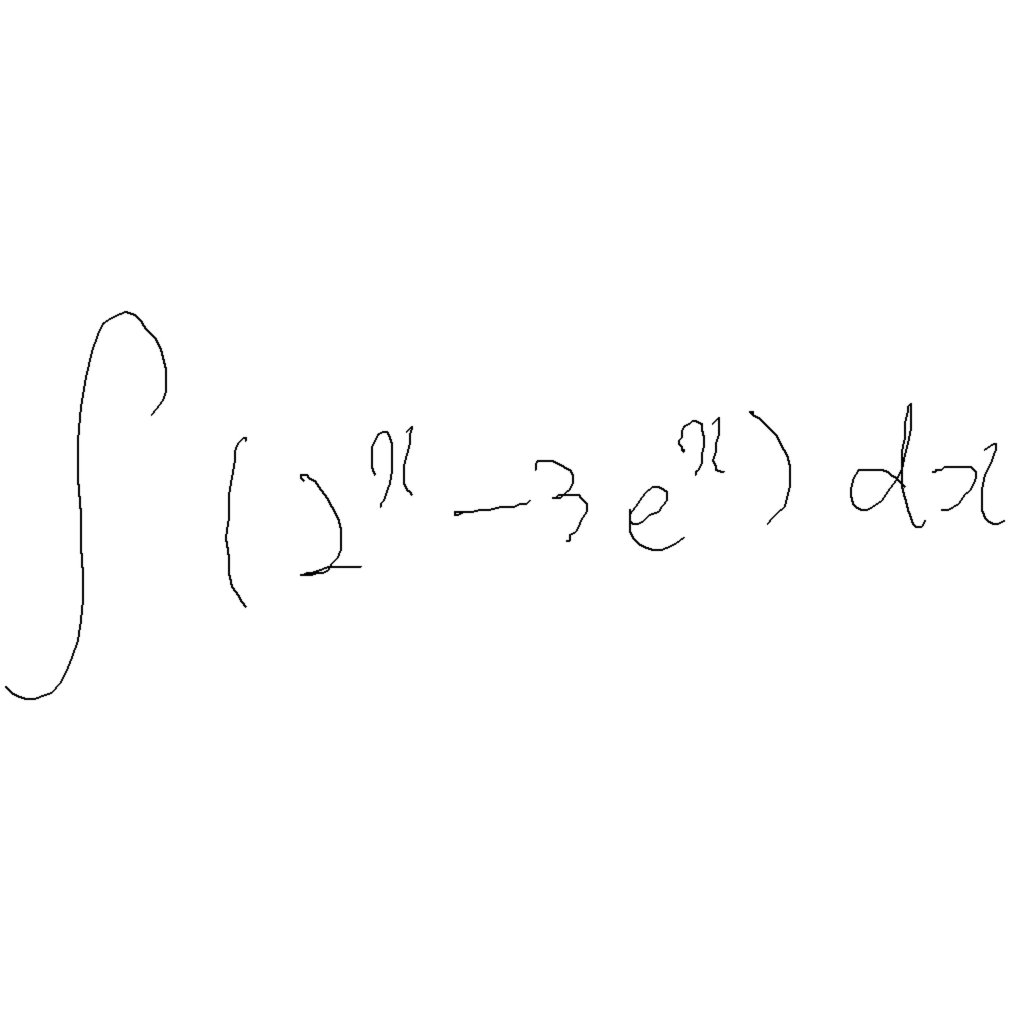 ∫ (2^x − 3e^x) dx